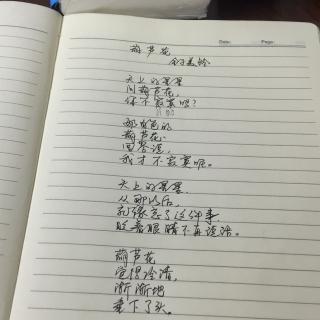 葫芦花
金子美铃
Date:
Page:
天上的星星
问葫芦花,
你不寂寞吗?
那白色的
葫芦花
回答说,
我才不寂寞呢。
天上的星星
从那以后
就像忘了这件事,
眨着眼睛不再说话。
葫芦花
觉得冷清,
渐渐地
垂下了头。